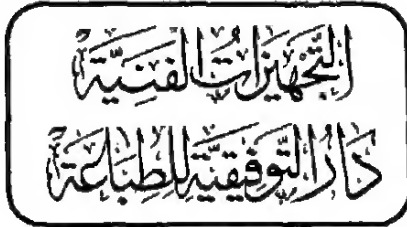 التَّجْهِيزَاتُ الْفَنِيَّة
دَارُ التَّوْفِيقِيَّة لِلطِّبَاعَة